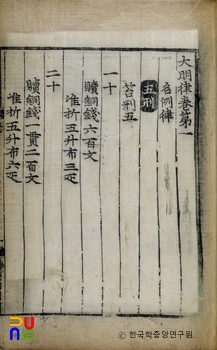 大明律卷第一
名例律
五刑
笞刑五
一十
贖銅錢六百文
准折五升布三疋
二十
贖銅錢一貫二百文
准折五升布六疋
PUNC
ⓒ 한국학중앙연구원